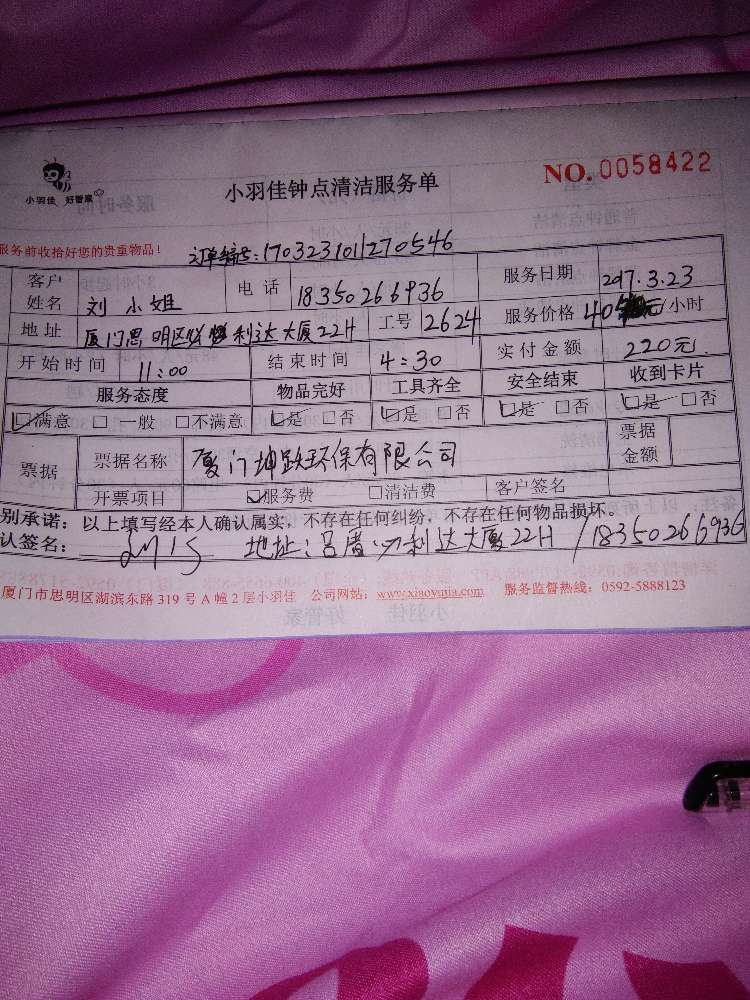 NO. 0058422
小羽佳 好管家
小羽佳钟点清洁服务单
服务前收拾好您的贵重物品!
订单编号:170323101127 0546
客户姓名 刘小姐 电话 18350266936 服务日期 2017.3.23
地址 厦门思明区 利达大厦22H 工号 2624 服务价格 40元/小时
开始时间 11:00 结束时间 4:30 实付金额 220元
服务态度 物品完好 工具齐全 安全结束 收到卡片
☑满意 □一般 □不满意 ☑是 □否 ☑是 □否 ☑是 □否 ☑是 □否
票据 票据名称 厦门坤跃环保有限公司 票据金额
开票项目 ☑服务费 □清洁费 客户签名
别承诺:以上填写经本人确认属实,不存在任何纠纷,不存在任何物品损坏。
认签名: 地址: 利达大厦22H /18350266936
厦门市思明区湖滨东路319号A幢2层小羽佳 公司网站:www.xiaoyujia.com 服务监督热线:0592-5888123